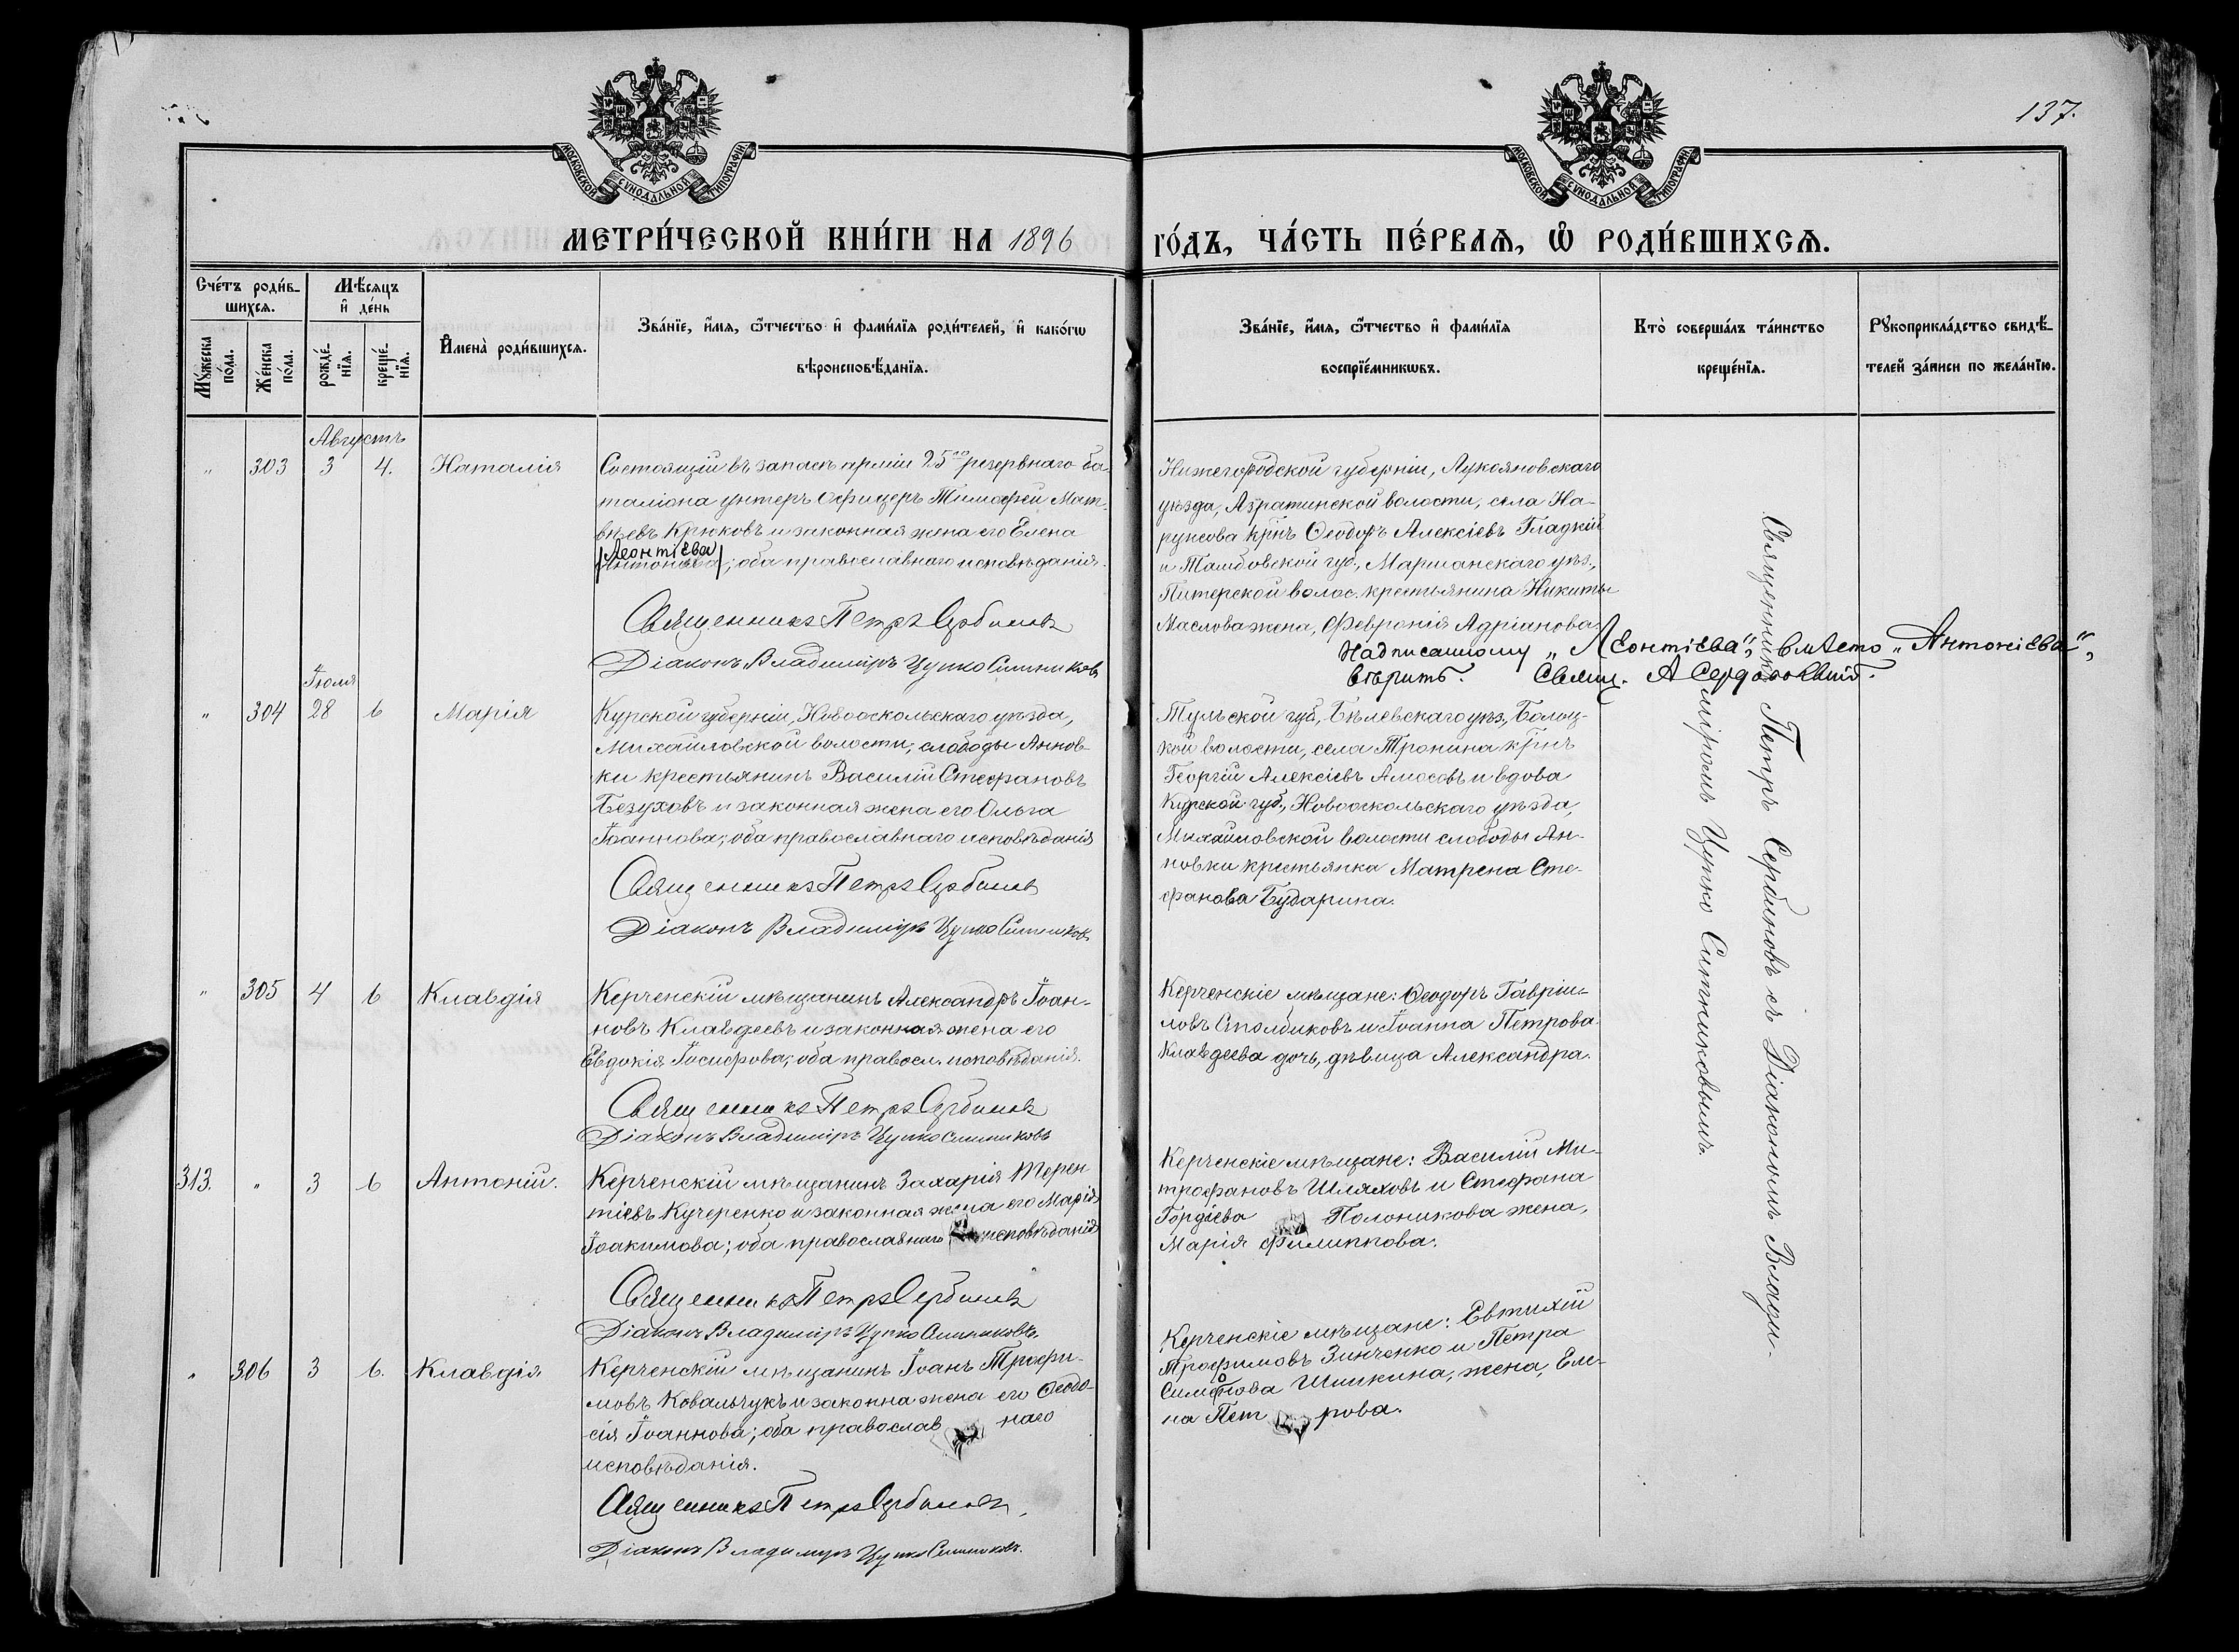 137.
МОСКОВСКОЙ СѴНОДАЛЬНОЙ ТИПОГРАФІИ
МОСКОВСКОЙ СѴНОДАЛЬНОЙ ТИПОГРАФІИ
МЕТРИ́ЧЕСКОЙ КНИ́ГИ НА 1896 ГО́ДЪ, ЧА́СТЬ ПЕ́РВАѦ, Ѡ҆ РОДИ́ВШИХСѦ.
Сче́тъ роди́в-
шихсѧ.
Мꙋ́жеска по́ла.
Же́нска по́ла.
Мѣ́сѧцъ
и҆ де́нь
рожде́-
нїѧ.
креще́-
нїѧ.
И҆мена̀ роди́вшихсѧ.
Зва́нїе, и҆́мѧ, ѻ҆́тчество и҆ фами́лїѧ роди́телей, и҆ како́гѡ
вѣроисповѣ́данїѧ.
Зва́нїе, и҆́мѧ, ѻ҆́тчество и҆ фами́лїѧ
воспрїе́мникѡвъ.
Кто̀ соверша́лъ та́инство
креще́нїѧ.
Рꙋкоприкла́дство свидѣ́-
телей за́писи по жела́нїю.
Августъ
" 303 3 4. Наталія
Состоящій въ запасѣ арміи 25го резервнаго ба-
таліона унтеръ офицеръ Тимофей Мат-
вѣевъ Крюковъ и законная жена его Елена
Леонтіева
Антоніева; оба православнаго исповѣданія.
Священникъ Петръ Сербиновъ
Діаконъ Владиміръ Цупко Ситниковъ
Нижегородской губерніи, Лукояновскаго
уѣзда, Азратинской волости, села На-
руксова крнъ Ѳеодоръ Алексіевъ Гладкій
и Тамбовской губ., Маршанскаго уѣз.,
Питерской волос. крестьянина Никиты
Маслова жена, Февронія Адріанова.
Надписанному „Леонтіева", вмѣсто „Антоніева",
вѣрить. Свящ. А Сердобольскій.
Іюля
" 304 28 6 Марія
Курской губерніи, Новооскольскаго уѣзда,
Михайловской волости, слободы Аннов-
ки крестьянинъ Василій Стефановъ
Безуховъ и законная жена его Ольга
Іоаннова; оба православнаго исповѣданія
Священникъ Петръ Сербиновъ
Діаконъ Владиміръ Цупко Ситниковъ
Тульской губ., Бѣлевскаго уѣз., Болоц-
кой волости, села Тронина крнъ
Георгій Алексіевъ Амосовъ и вдова
Курской губ., Новооскольскаго уѣзда,
Михайловской волости слободы Ан-
новки крестьянка Матрена Сте-
фанова Бударина.
" 305 4 6 Клавдія
Керченскій мѣщанинъ Александръ Іоан-
новъ Клавдеевъ и законная жена его
Евдокія Іосифова; оба правосл. исповѣданія.
Священникъ Петръ Сербиновъ
Діаконъ Владиміръ Цупко Ситниковъ
Керченскіе мѣщане: Ѳеодоръ Гавріи-
ловъ Столбиковъ и Іоанна Петрова
Клавдеева дочь, дѣвица Александра.
313. " 3 6 Антоній.
Керченскій мѣщанинъ Захарія Терен-
тіевъ Кучеренко и законная жена его Марія
Іоакимова; оба православнаго исповѣданія
Священникъ Петръ Сербиновъ
Діаконъ Владиміръ Цупко Ситниковъ.
Керченскіе мѣщане: Василій Ми-
трофановъ Шляховъ и Стефана
Гордіева Полоникова жена,
Марія Филиппова.
" 306 3 6. Клавдія
Керченскій мѣщанинъ Іоанъ Трофи-
мовъ Ковальчукъ и законна жена его Ѳеодо-
сія Іоаннова; оба православ наго
исповѣданія.
Священникъ Петръ Сербиновъ,
Діаконъ Владимиръ Цупко Ситниковъ.
Керченскіе мѣщане: Евтихій
Трофимовъ Зинченко и Петра
Симонова Шишкина, жена, Еле-
на Пет рова.
Священникъ Петръ Сербиновъ съ Діакономъ Влади-
міромъ Цупко Ситниковымъ.